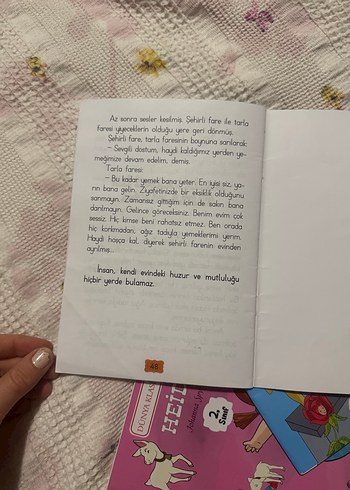 Az sonra sesler kesilmiş. Şehirli fare ile tarla
faresi yiyeceklerin olduğu yere geri dönmüş.
Şehirli fare, tarla faresinin boynuna sarılarak:
– Sevgili dostum, haydi kaldığımız yerden ye-
meğimize devam edelim, demiş.
Tarla faresi:
– Bu kadar yemek bana yeter. En iyisi siz, ya-
rın bana gelin. Ziyafetinizde bir eksiklik olduğunu
sanmayın. Zamansız gittiğim için de sakın bana
darılmayın. Gelince göreceksiniz. Benim evim çok
sessiz. Hiç kimse beni rahatsız etmez. Ben orada
hiç korkmadan, ağız tadıyla yemeklerimi yerim.
Haydi hoşça kal, diyerek şehirli farenin evinden
ayrılmış...
İnsan, kendi evindeki huzur ve mutluluğu
hiçbir yerde bulamaz.
48
DÜNYA KLAS
HEİD
2.
Sınıf